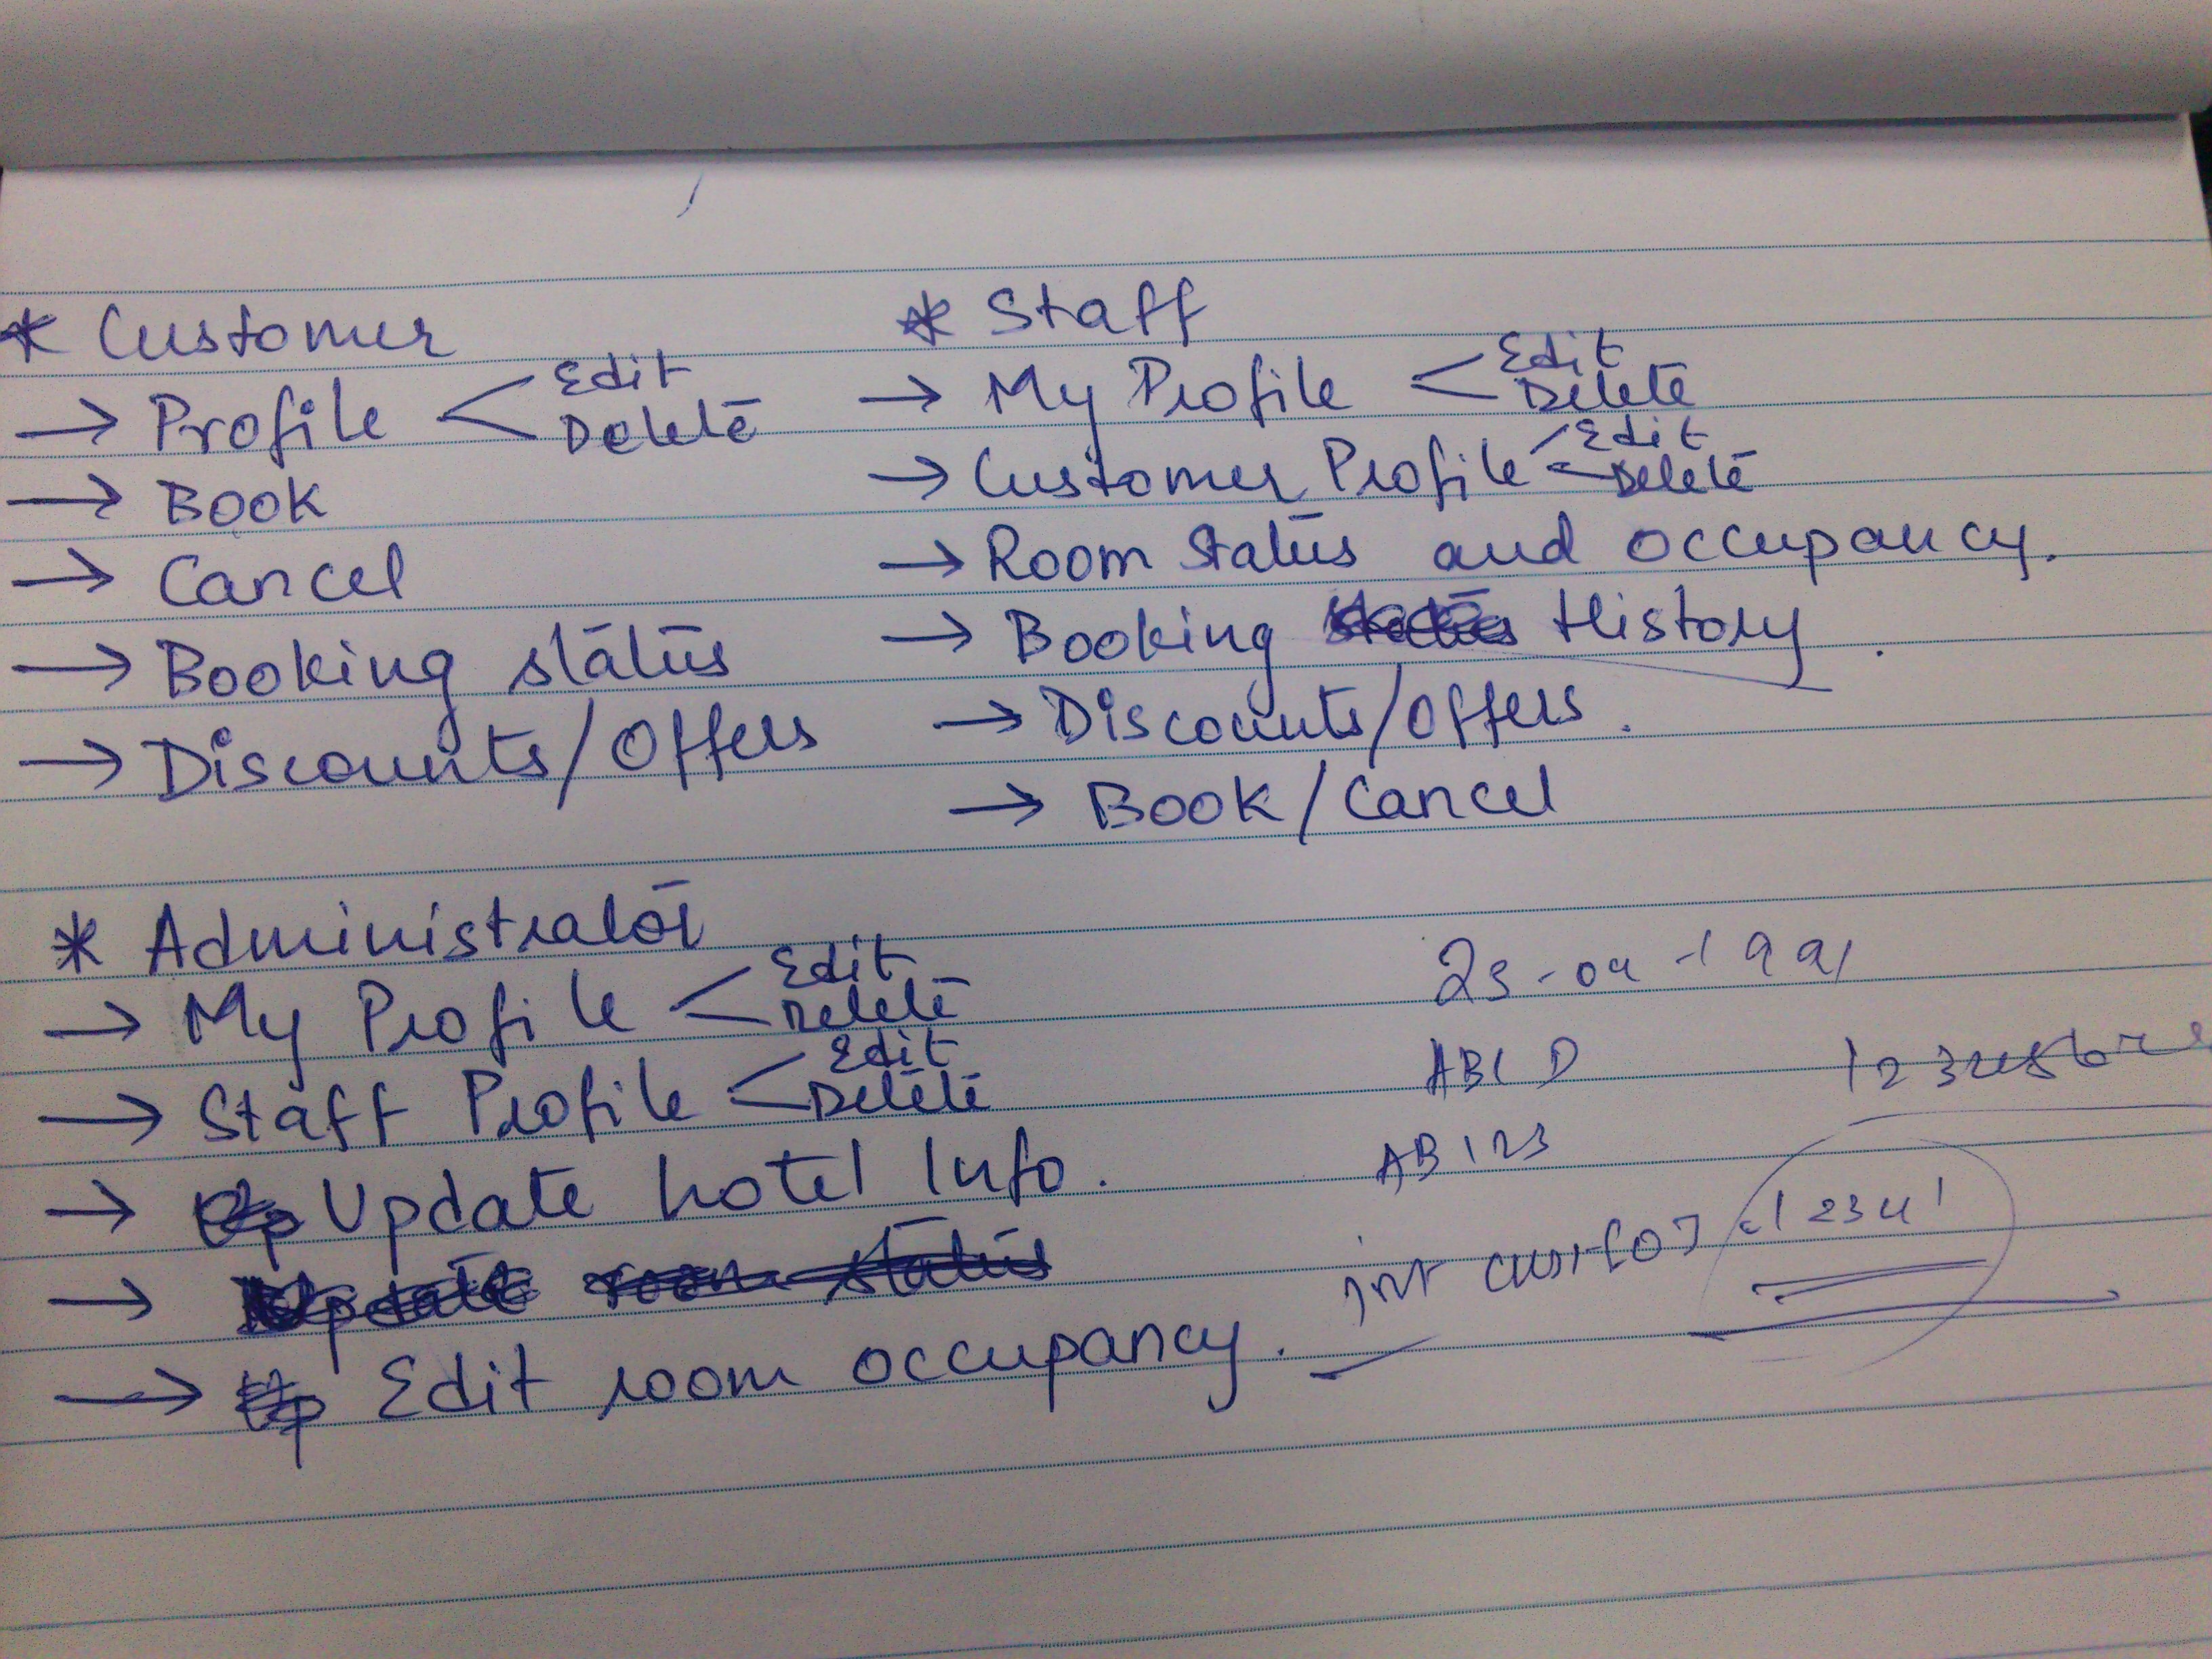 * Customer
→ Profile < Edit
Delete
→ Book
→ Cancel
→ Booking status
→ Discounts/Offers
* Staff
→ My Profile < Edit
Delete
→ Customer Profile < Edit
Delete
→ Room status and occupancy.
→ Booking History.
→ Discounts/Offers.
→ Book/Cancel
* Administrator
→ My Profile < Edit
Delete
→ Staff Profile < Edit
Delete
→ Update hotel Info.
→ Update room status
→ Edit room occupancy.
ABCD
AB123
int
1234